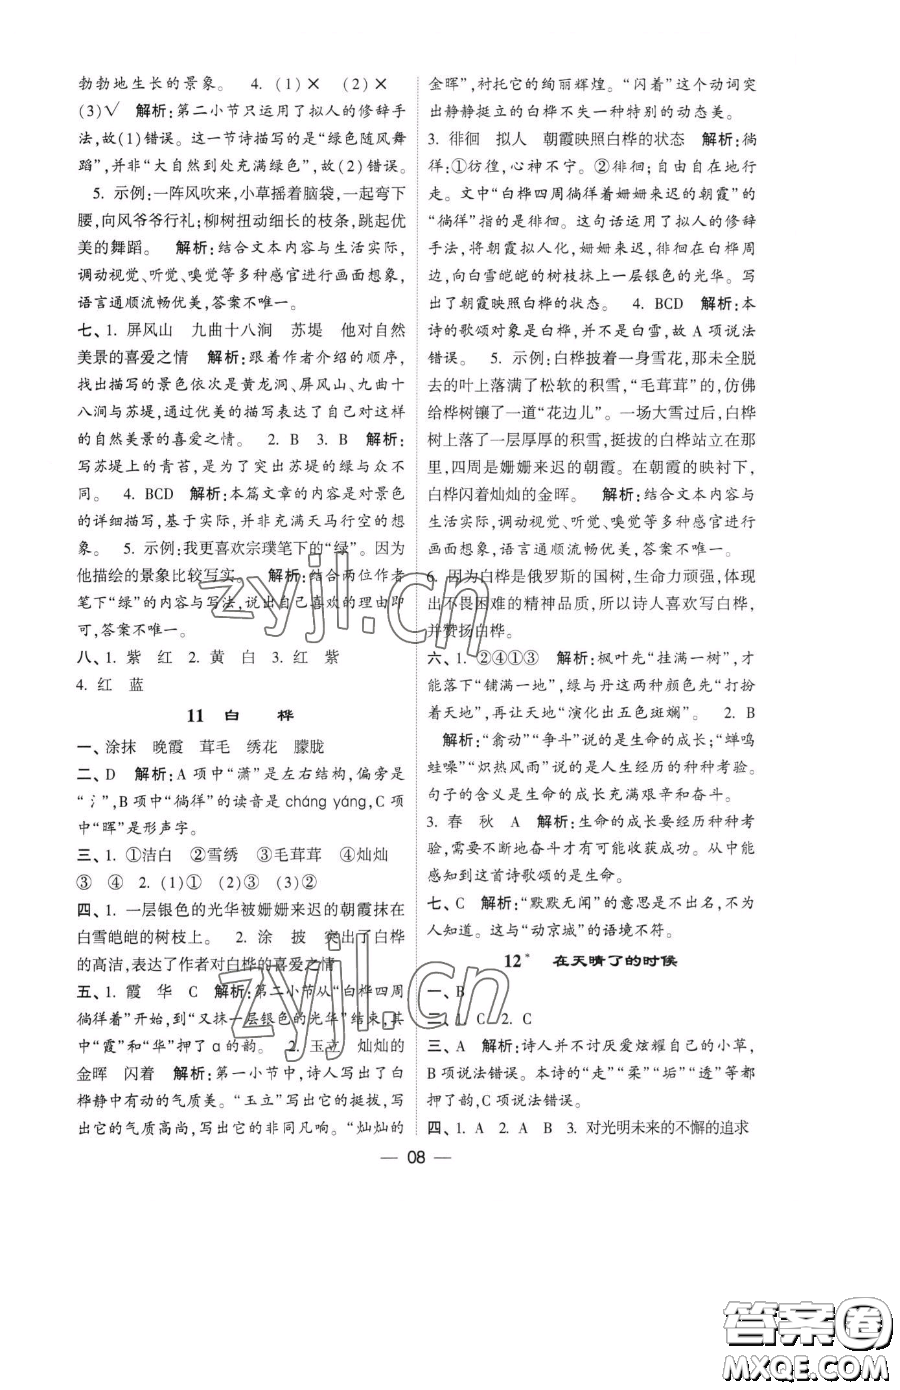 勃勃地生长的景象。 4. (1)× (2)×
(3)√ 解析:第二小节只运用了拟人的修辞手
法,故(1)错误。这一节诗描写的是“绿色随风舞
蹈”,并非“大自然到处充满绿色”,故(2)错误。
5. 示例:一阵风吹来,小草摇着脑袋,一起弯下
腰,向风爷爷行礼;柳树扭动细长的枝条,跳起优
美的舞蹈。 解析:结合文本内容与生活实际,
调动视觉、听觉、嗅觉等多种感官进行画面想象,
语言通顺流畅优美,答案不唯一。
七、1. 屏风山 九曲十八涧 苏堤 他对自然
美景的喜爱之情 解析:跟着作者介绍的顺序,
找出描写的景色依次是黄龙洞、屏风山、九曲十
八涧与苏堤,通过优美的描写表达了自己对这样
的自然美景的喜爱之情。 2. B 3. B 解析:
写苏堤上的青苔,是为了突出苏堤的绿与众不
同。 4. BCD 解析:本篇文章的内容是对景色
的详细描写,基于实际,并非满天马行空的想
象。 5. 示例:我更喜欢宗璞笔下的“绿”。因为
他描绘的景象比较写实。 解析:结合两位作者
笔下“绿”的内容与写法,说出自己喜欢的理由即
可,答案不唯一。
八、1. 紫 红 2. 黄 白 3. 红 紫
4. 红 蓝
11 白 桦
一、涂抹 晚霞 茸毛 绣花 朦胧
二、D 解析:A 项中“潇”是左右结构,偏旁是
“氵”,B 项中“徜徉”的读音是 cháng yáng,C 项
中“晖”是形声字。
三、1. ①洁白 ②雪绣 ③毛茸茸 ④灿灿
③ ④ 2. (1)① (2)③ (3)②
四、1. 一层银色的光华被姗姗来迟的朝霞抹在
白雪皑皑的树枝上。 2. 涂 披 突出了白桦
的高洁,表达了作者对白桦的喜爱之情
五、1. 霞 华 C 解析:第二小节从“白桦四周
徜徉着”开始,到“又抹一层银色的光华”结束,其
中“霞”和“华”押了 ɑ 的韵。 2. 玉立 灿灿的
金晖 闪着 解析:第一小节中,诗人写出了白
桦静中有动的气质美。“玉立”写出它的挺拔,写
出它的气质高尚,写出它的非同凡响。“灿灿的
金晖”,衬托它的绚丽辉煌。“闪着”这个动词突
出静静挺立的白桦不失一种特别的动态美。
3. 徘徊 拟人 朝霞映照白桦的状态 解析:徜
徉:①彷徨,心神不宁。②徘徊;自由自在地行
走。文中“白桦四周徜徉着姗姗来迟的朝霞”的
“徜徉”指的是徘徊。这句话运用了拟人的修辞
手法,将朝霞拟人化,姗姗来迟,徘徊在白桦周
边,向白雪皑皑的树枝抹上一层银色的光华。写
出了朝霞映照白桦的状态。 4. BCD 解析:本
诗的歌颂对象是白桦,并不是白雪,故 A 项说法
错误。 5. 示例:白桦披着一身雪花,那未全脱
去的叶上落满了松软的积雪,“毛茸茸”的,仿佛
给桦树镶了一道“花边儿”。一场大雪过后,白桦
树上落了一层厚厚的积雪,挺拔的白桦站立在那
里,四周是姗姗来迟的朝霞。在朝霞的映衬下,
白桦闪着灿灿的金晖。 解析:结合文本内容与
生活实际,调动视觉、听觉、嗅觉等多种感官进行
画面想象,语言通顺流畅优美,答案不唯一。
6. 因为白桦是俄罗斯的国树,生命力顽强,体现
出不畏困难的精神品质,所以诗人喜欢写白桦,
并赞扬白桦。
六、1. ②④①③ 解析:枫叶先“挂满一树”,才
能落下“铺满一地”,绿与丹这两种颜色先“打扮
着天地”,再让天地“演化出五色斑斓”。 2. B
解析:“翕动”“争斗”说的是生命的成长;“蝉鸣
蛙噪”“炽热风雨”说的是人生经历的种种考验。
句子的含义是生命的成长充满艰辛和奋斗。
3. 春 秋 A 解析:生命的成长要经历种种考
验,需要不断地奋斗才有可能收获成功。从中能
感知到这首诗歌颂的是生命。
七、C 解析:“默默无闻”的意思是不出名,不为
人知道。这与“动京城”的语境不符。
12* 在天晴了的时候
一、B
二、1. C 2. C
三、A 解析:诗人并不讨厌爱炫耀自己的小草,
B 项说法错误。本诗的“走”“柔”“垢”“透”等都
押了韵,C 项说法错误。
四、1. A 2. A B 3. 对光明未来的不懈的追求
— 08 —
zyjl.cn
zyjl.cn
答案圈
MXQE.COM